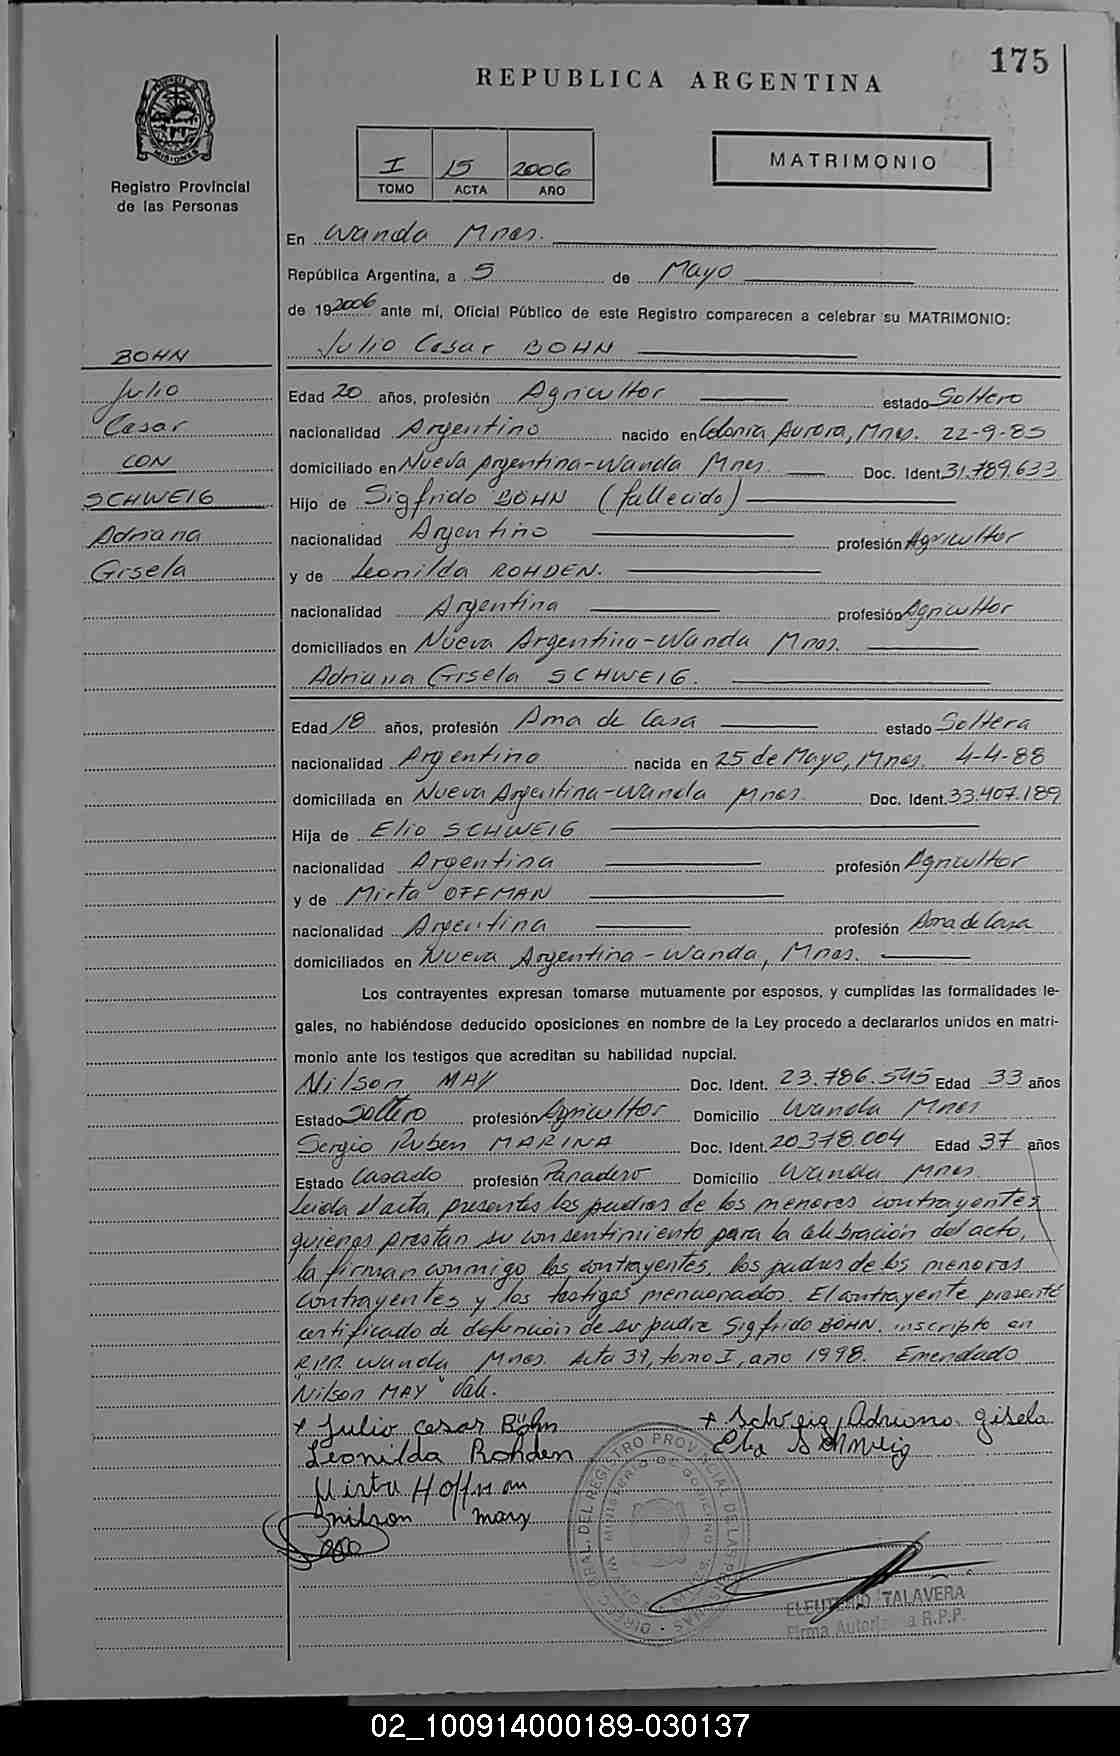 175
REPUBLICA ARGENTINA
PROVINCIA DE MISIONES
Registro Provincial
de las Personas
I 15 2006
TOMO ACTA AÑO
MATRIMONIO
En Wanda Mnes.
República Argentina, a 5 de Mayo
de 192006 ante mi, Oficial Público de este Registro comparecen a celebrar su MATRIMONIO:
Julio Cesar BOHN
BOHN
Julio
Cesar
CON
SCHWEIG
Adriana
Gisela
Edad 20 años, profesión Agricultor estado Soltero
nacionalidad Argentino nacido en Colonia Aurora, Mnes. 22-9-85
domiciliado en Nueva Argentina-Wanda Mnes. Doc. Ident. 31.789.633
Hijo de Sigfrido BOHN (fallecido)
nacionalidad Argentino profesión Agricultor
y de Leonilda ROHDEN.
nacionalidad Argentina profesión Agricultor
domiciliados en Nueva Argentina-Wanda Mnes.
Adriana Gisela SCHWEIG.
Edad 18 años, profesión Ama de Casa estado Soltera
nacionalidad Argentino nacida en 25 de Mayo, Mnes. 4-4-88
domiciliada en Nueva Argentina-Wanda Mnes. Doc. Ident. 33.407.189
Hija de Elio SCHWEIG
nacionalidad Argentina profesión Agricultor
y de Mirta OFFMAN
nacionalidad Argentina profesión Ama de Casa
domiciliados en Nueva Argentina-Wanda, Mnes.
Los contrayentes expresan tomarse mutuamente por esposos, y cumplidas las formalidades le-
gales, no habiéndose deducido oposiciones en nombre de la Ley procedo a declararlos unidos en matri-
monio ante los testigos que acreditan su habilidad nupcial.
Nilson MAY Doc. Ident. 23.786.545 Edad 33 años
Estado Soltero profesión Agricultor Domicilio Wanda Mnes
Sergio Ruben MARINA Doc. Ident. 20.378.004 Edad 37 años
Estado Casado profesión Panadero Domicilio Wanda Mnes.
Leida el acta, presentes los padres de los menores contrayentes
quienes prestan su consentimiento para la celebración del acto,
la firman conmigo los contrayentes, los padres de los menores
contrayentes y los testigos mencionados. El contrayente presentó
certificado de defunción de su padre Sigfrido BOHN, inscripto en
R.P.P. Wanda Mnes. Acta 39, tomo I, año 1998. Emendado
"Nilson MAY" Vale.
+ Julio Cesar Böhn + Schweig, Adriana Gisela
Leonilda Rohden Elio Schweig
Mirta Hoffman
nilson may
ELEUTERIO TALAVERA
Firma Autoriza a R.P.P.
02_100914000189-030137